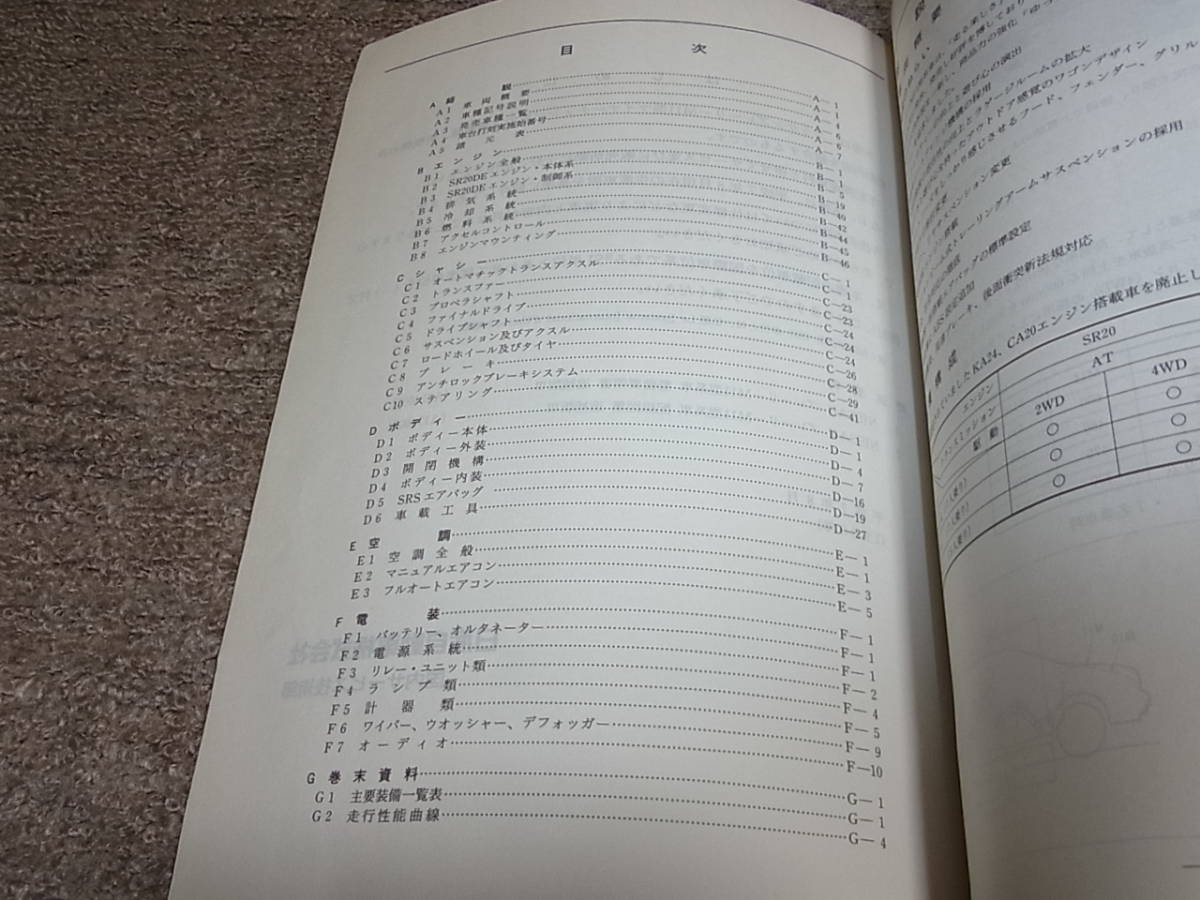 目次
A 総説 A—1
A1 車両概要 A—1
A2 車種記号説明 A—4
A3 発売車種一覧 A—6
A4 車台打刻実施始番号 A—6
A5 諸元表 A—7
B エンジン B—1
B1 エンジン全般 B—1
B2 SR20DEエンジン・本体系 B—5
B3 SR20DEエンジン・制御系 B—19
B4 排気系統 B—40
B5 冷却系統 B—42
B6 燃料系統 B—44
B7 アクセルコントロール B—45
B8 エンジンマウンティング B—46
C シャシー C—1
C1 オートマチックトランスアクスル C—1
C2 トランスファー C—23
C3 プロペラシャフト C—23
C4 ファイナルドライブ C—24
C5 ドライブシャフト C—24
C6 サスペンション及びアクスル C—24
C7 ロードホイール及びタイヤ C—26
C8 ブレーキ C—28
C9 アンチロックブレーキシステム C—29
C10 ステアリング C—41
D ボディー D—1
D1 ボディー本体 D—1
D2 ボディー外装 D—4
D3 開閉機構 D—7
D4 ボディー内装 D—16
D5 SRSエアバッグ D—19
D6 車載工具 D—27
E 空調 E—1
E1 空調全般 E—1
E2 マニュアルエアコン E—3
E3 フルオートエアコン E—5
F 電装 F—1
F1 バッテリー、オルタネーター F—1
F2 電源系統 F—1
F3 リレー・ユニット類 F—2
F4 ランプ類 F—4
F5 計器類 F—5
F6 ワイパー、ウオッシャー、デフォッガー F—9
F7 オーディオ F—10
G 巻末資料 G—1
G1 主要装備一覧表 G—1
G2 走行性能曲線 G—4
概要
遊び心の演出
機構の採用
上とラゲージルームの拡大
アウトドア感覚のワゴンデザイン
感じさせるフード、フェンダー、グリル
サスペンション変更
トレーリングアームサスペンションの採用
バッグの標準設定
設定追加
ブレーキ、後面衝突新法規対応
構成
いましたKA24、CA20エンジン搭載車を廃止し
エンジン SR20
ミッション AT
駆動 2WD 4WD
○ ○
○ ○
○ ○